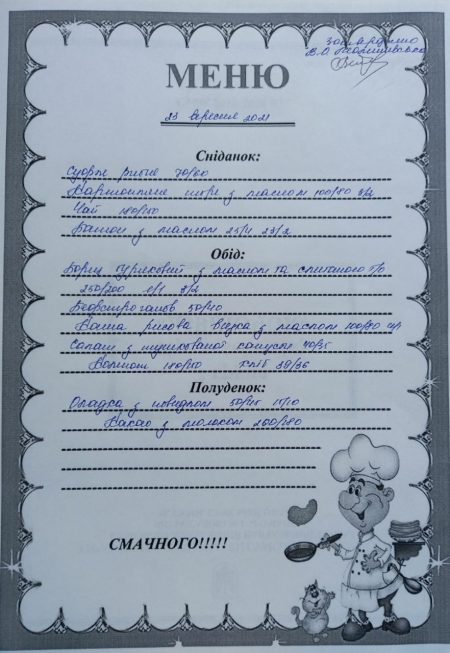 Затверджено
МЕНЮ
23 вересня 2021
Сніданок:
Суфле рибне 70/60
Картопляне пюре з маслом 100/80 3/2
Чай 180/150
Батон з маслом 25/4 23/2
Обід:
Борщ буряковий з маслом та сметаною
250/200 3/2
Бефстроганов 50/40
Каша рисова в'язка з маслом 100/80
Салат з тушкованої капусти 40/35
Компот 180/150 хліб 38/36
Полуденок:
Оладка з повидлом 50/45 15/10
Какао з молоком 200/180
СМАЧНОГО!!!!!